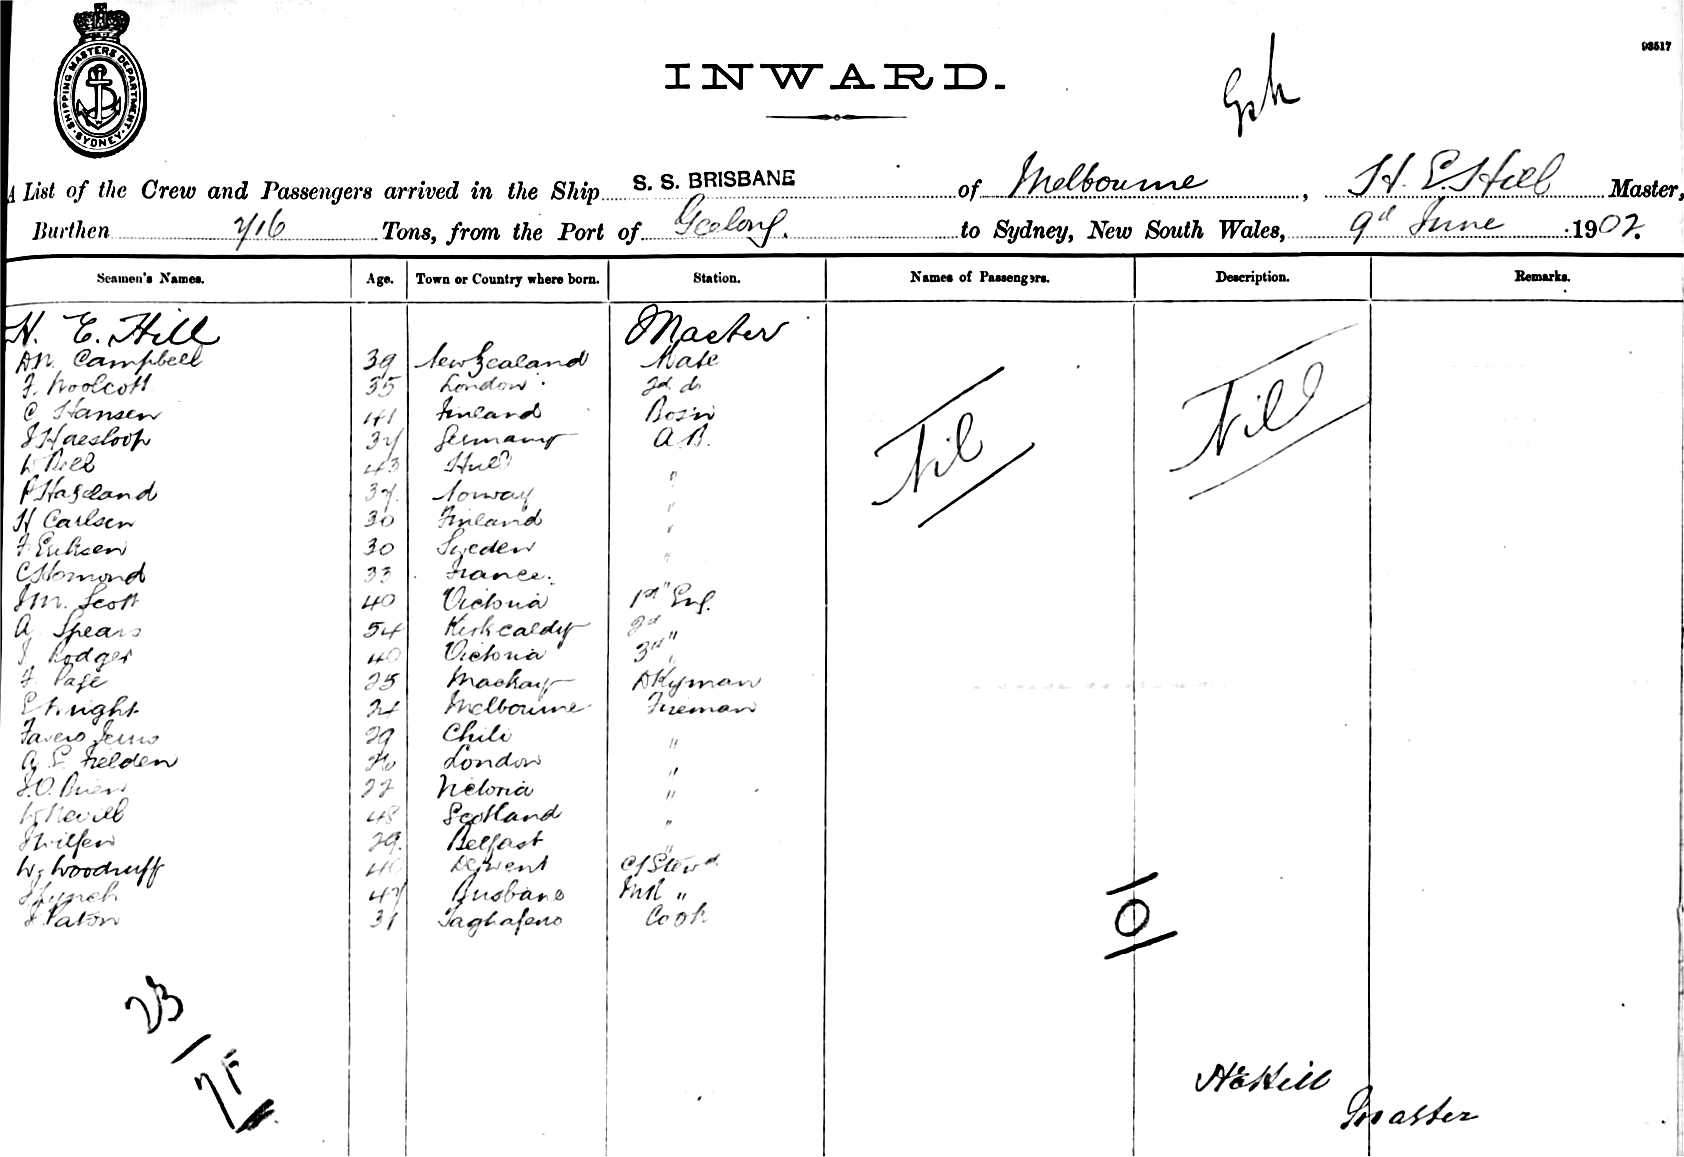 SHIPPING MASTERS DEPARTMENT · SYDNEY ·
93517
INWARD.
A List of the Crew and Passengers arrived in the Ship S. S. BRISBANE of Melbourne, H. E. Hill Master,
Burthen Tons, from the Port of Geelong. to Sydney, New South Wales, 9th June 1902.
Seamen's Names. Age. Town or Country where born. Station. Names of Passengers. Description. Remarks.
H. E. Hill Master
Campbell 39 New Zealand Mate
F. Woolcott 35 London 2d do
C Hansen 41 Finland Bos'n
J Haesloop 37 Germany A.B.
W Bell 43 Hull "
P Hageland 37 Norway "
H Carlsen 30 Finland "
F. Eriksen 30 Sweden "
33 France. "
J M. Scott 40 Victoria 1st Eng.
A Spears 54 Kirkcaldy 2d "
J Rodger 40 Victoria 3rd "
F Page 25 Mackay Dkyman
E Knight 24 Melbourne Fireman
29 Chili "
A E Fielden 26 London "
J. O. Brien 22 Victoria "
W Nevill 48 Scotland "
29. Belfast "
W. Woodruff 40 Derwent Cf Stewd
J Lynch 47 Brisbane "
J. Paton 31 Cook
Nil Nill
0
23
7F
H E Hill
Master